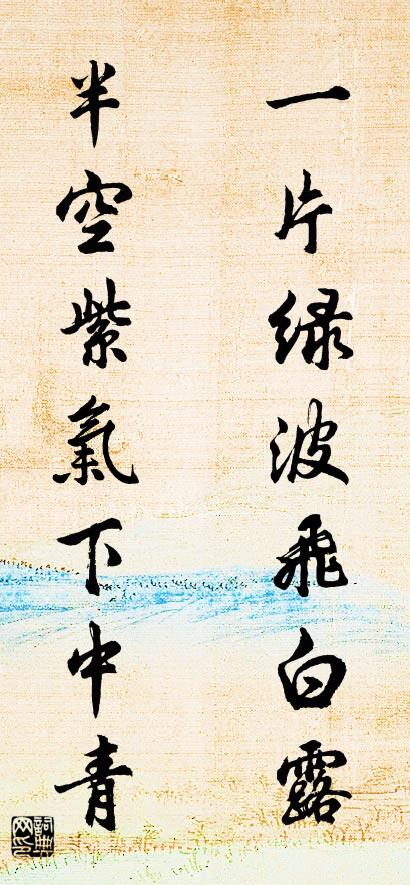 一片绿波飞白露
半空紫氣下中青
詞典网印